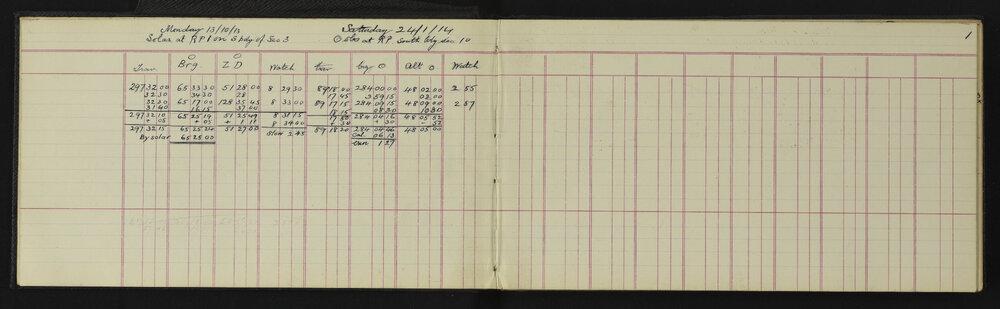 Monday 13/10/13 Saturday 24/1/14 1
Solar at RP 1 on S bdg of Sec 3 Obs at RP South bdy Sec 10
Trav Brg. ZD Watch Trav brg Alt Watch
297 32 00 65 33 30 51 28 00 8 29 30 89 18 00 284 00 00 48 02 00 2 55
32 30 34 30 28 17 45 3 59 15 02 00
32 30 65 17 00 128 35 45 8 33 00 89 17 15 284 09 15 48 09 00 2 57
31 40 16 15 37 00 18 15 08 30 10 30
297 32 10 65 25 19 51 25 49 8 31 15 284 04 16 48 05 52
+ 05 + 05 + 1 11 8 34 00 + 30 + 30 - 52
297 32 15 65 25 24 51 27 00 Slow 2 45 89 18 20 284 04 46 48 05 00
By solar 65 28 00 Cal. 06 13
1 27